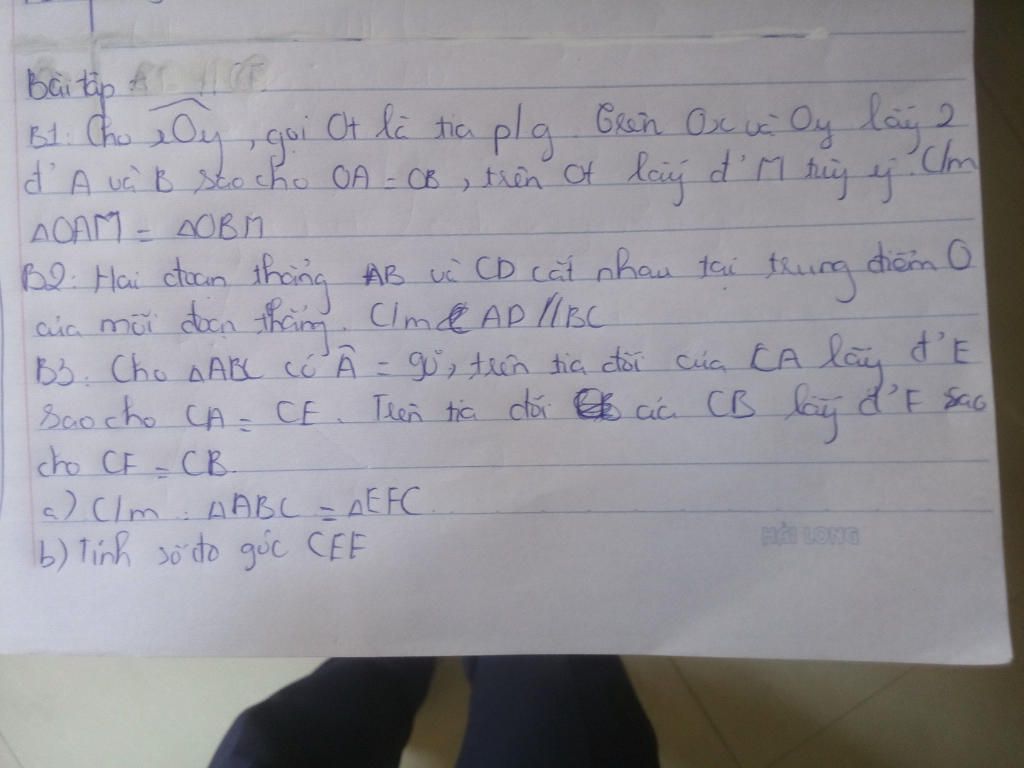 Bài tập
B1: Cho xOy, gọi Ot là tia p/g. Trên Ox và Oy lấy 2
đ' A và B sao cho OA = OB, trên Ot lấy đ' M tùy ý. C/m
ΔOAM = ΔOBM
B2: Hai đoạn thẳng AB và CD cắt nhau tại trung điểm O
của mỗi đoạn thẳng. C/m AD // BC
B3: Cho ΔABC có Â = 90°, trên tia đối của CA lấy đ' E
sao cho CA = CE. Trên tia đối của CB lấy đ' F sao
cho CF = CB.
a) C/m: ΔABC = ΔEFC
b) Tính số đo góc CEF
HẢI LONG